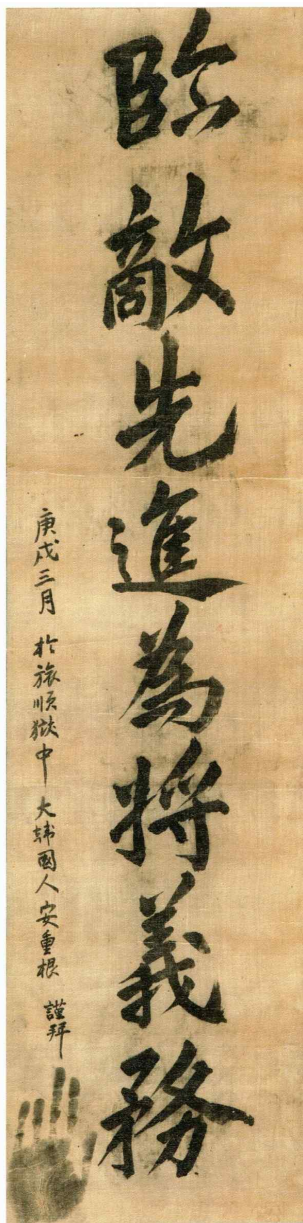 臨敵先進為將義務
庚戌三月 於旅順獄中 大韓國人 安重根 謹拜